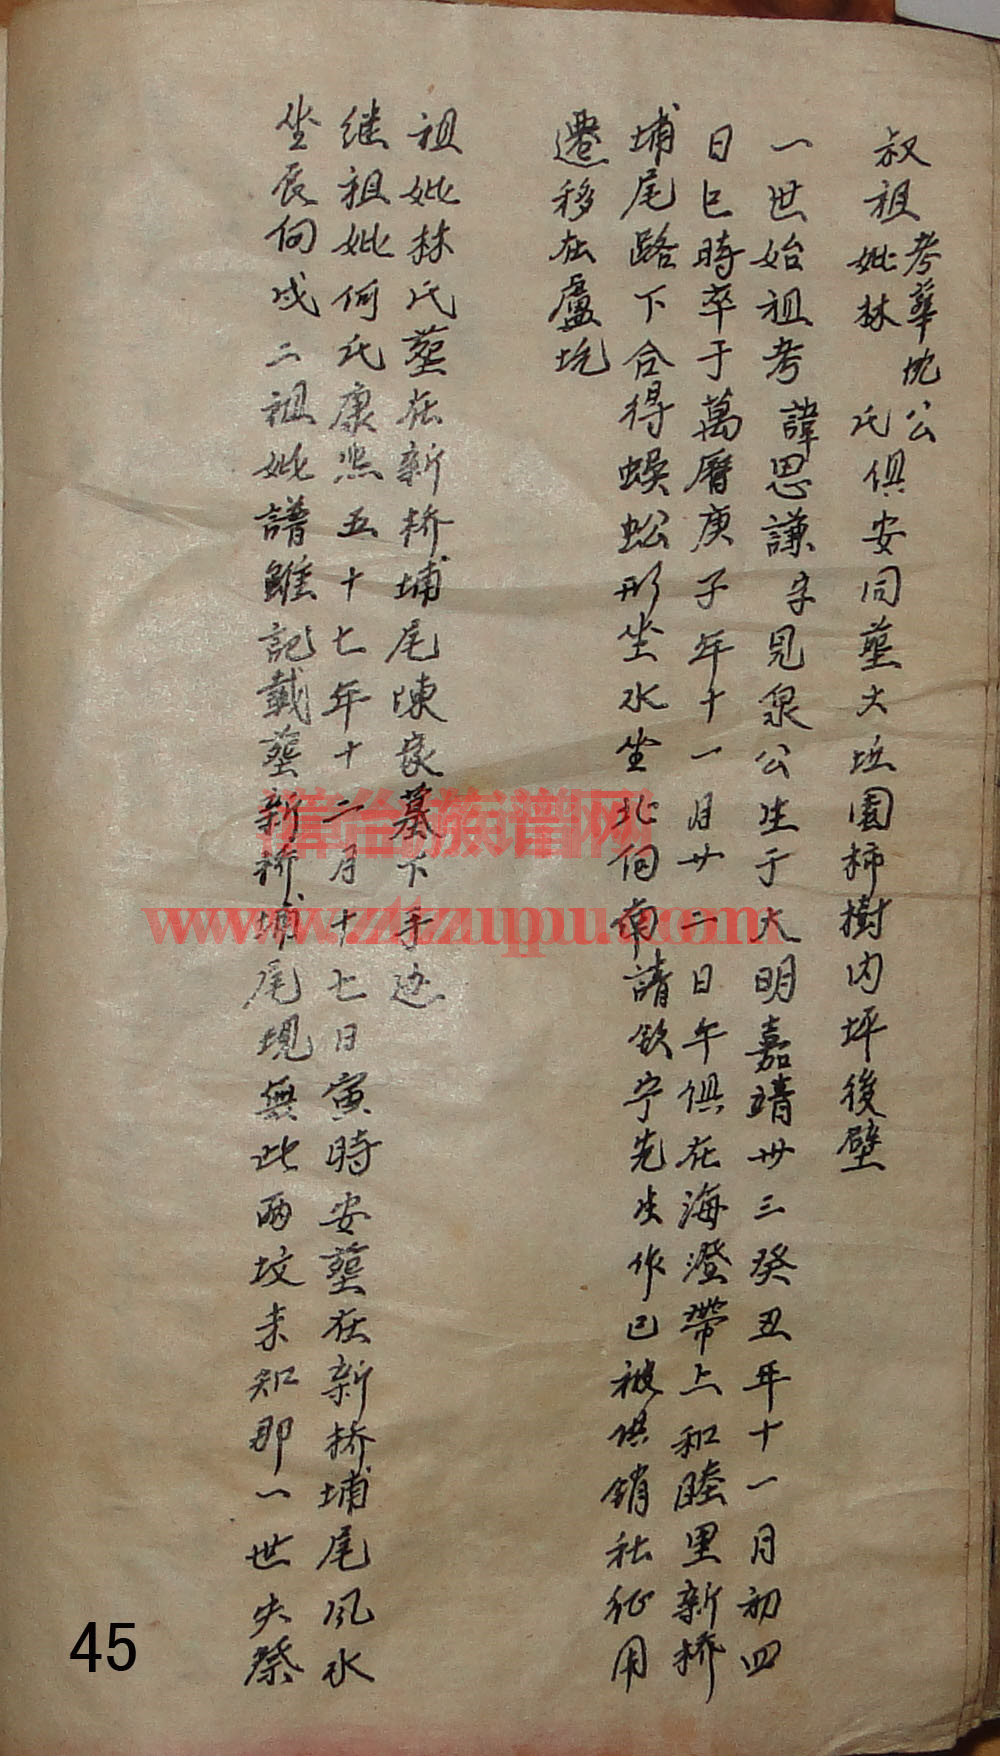 叔祖考華忱公
妣林氏俱安同塟大坵園柿樹内坪後壁
一世始祖考諱思謙字見泉公生于大明嘉靖卅三癸丑年十一月初四
日巳時卒于萬曆庚子年十一月廿二日午俱在海澄帶上和睦里新橋
埔尾路下合得蜈蚣形坐水坐北向南請欽宁先生作已被供銷社征用
遷移在盧坑
祖妣林氏塟在新桥埔尾陳家墓下手边
继祖妣何氏康熙五十七年十二月十七日寅時安塟在新桥埔尾风水
坐辰向戌二祖妣譜雖記載塟新桥埔尾現無此兩坟未知那一世失祭
漳台族谱网
www.ztzupu.com
45